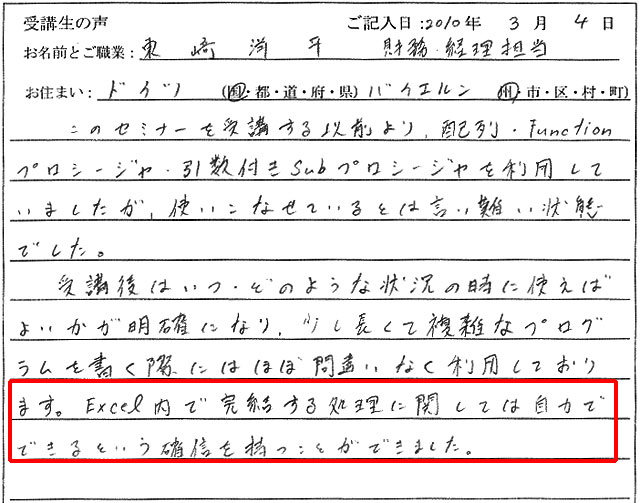 受講生の声 ご記入日:2010年 3月 4日
お名前とご職業:東崎 洵平 財務・経理担当
お住まい:ドイツ (国・都・道・府・県) バイエルン (州・市・区・村・町)
このセミナーを受講する以前より、配列・Function
プロシージャ・引数付きSubプロシージャを利用して
いましたが、使いこなせているとは言い難い状態
でした。
受講後はいつ・どのような状況の時に使えば
よいかが明確になり、少し長くて複雑なプログ
ラムを書く際にはほぼ間違いなく利用しており
ます。Excel内で完結する処理に関しては自力で
できるという確信を持つことができました。